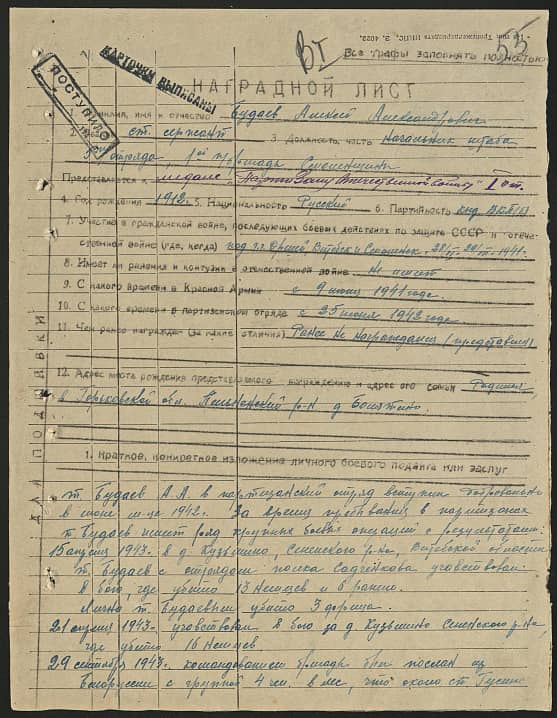 Тип. Трансжелдориздата НКПС, З. 4022.
Все графы заполнять полностью
55
КАРТОЧКИ ВЫПИСАНЫ
ПОСТУПИЛО
НАГРАДНОЙ ЛИСТ
имя и отчество Будаев Алексей Александрович
ст. сержант 3. Должность, часть Начальник штаба
отряда, 1ой бригады
Представляется к медали "Партизану Отечественной войны" I ст.
4. Год рождения 1912г. 5. Национальность Русский 6. Партийность канд. ВКП(б)
7. Участие в гражданской войне, последующих боевых действиях по защите СССР и отече-
ственной войне (где, когда) под г.г. Оршей, Витебск и Смоленск 1941г.
8. Имеет ли ранения и контузии в отечественной войне Не имеет
9. С какого времени в Красной Армии с 9 июня 1941 года.
10. С какого времени в партизанском отряде с 25 июня 1942 года
11. Чем ранее награжден (за какие отличия) Ранее не награждался (представлен)
12. Адрес места рождения представляемого к награждению и адрес его семьи Родился
в Горьковской обл. р-н д.
ДЛЯ ПОДШИВКИ
1. Краткое, конкретное изложение личного боевого подвига или заслуг
т. Будаев А.А. в партизанский отряд вступил добровольно
в июне м-це 1942г. За время пребывания в партизанах
т. Будаев имеет ряд крупных боевых операций с результатами:
15 апреля 1943г. в д. Кузьмино, Сенненского р-на, Витебской области
т. Будаев с отрядами полка Садчикова участвовал
в бою, где убито 13 немцев и 6 ранено.
Лично т. Будаевым убито 3 фрица.
21 апреля 1943г. участвовал в бою за д. Кузьмино Сенненского р-на,
где убито 16 немцев
29 сентября 1943г. командованием бригады был послан из
Белоруссии с группой 4 чел. в лес, что около ст. Гусино